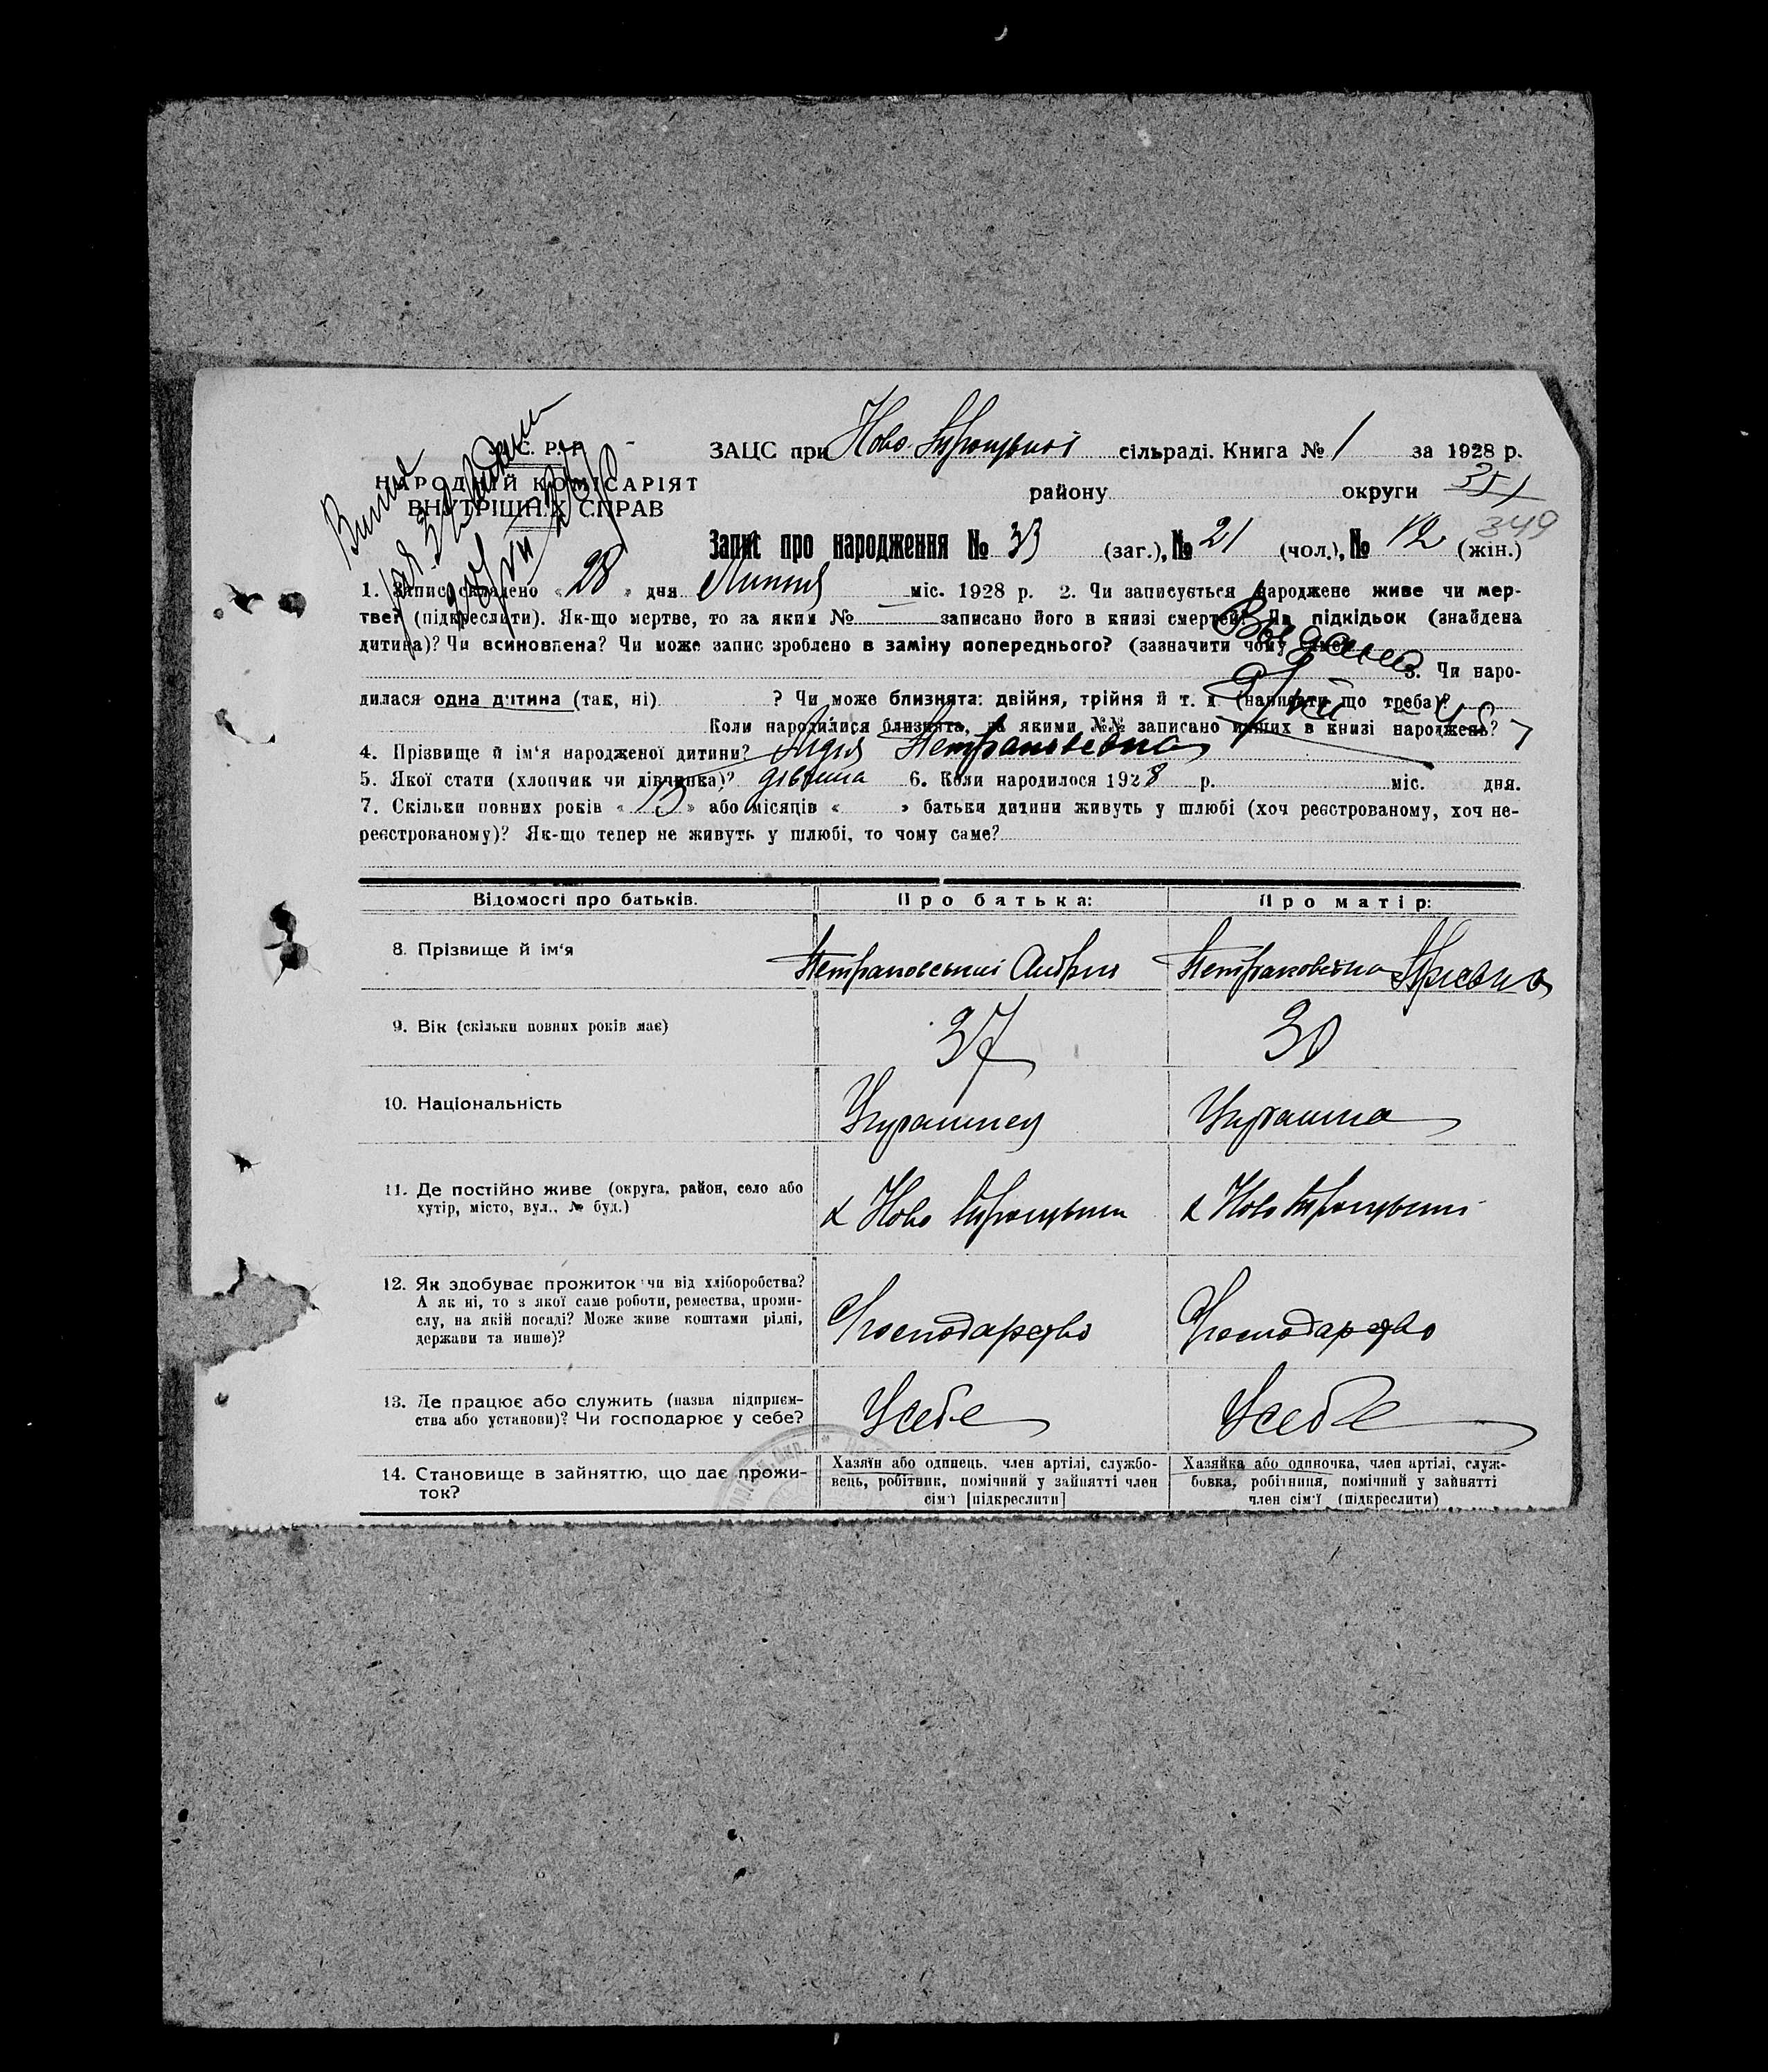 У.С.Р.Р.
НАРОДНІЙ КОМІСАРІЯТ
ВНУТРІШНІХ СПРАВ
ЗАЦС при Ново сільраді. Книга № 1 за 1928 р.
району округи 351
349
Запис про народження № 33 (заг.), № 21 (чол.), № 12 (жін.)
1. Запис складено « 28 » дня Липня міс. 1928 р. 2. Чи записується народжене живе чи мер-
тве? (підкреслити). Як-що мертве, то за яким № записано його в книзі смертей? Чи підкідьок (знайдена
дитина)? Чи всиновлена? Чи може запис зроблено в заміну попереднього? (зазначити чому саме)
Выдано
3. Чи наро-
дилася одна дитина (так, ні) ? Чи може близнята: двійня, трійня й т. д. (написати що треба)?
Коли народилися близнята, за якими №№ записано инших в книзі народжень?
4. Прізвище й ім'я народженої дитини? Лідія Петраковська
5. Якої стати (хлопчик чи дівчинка)? дівчина 6. Коли народилося 1928 р. міс. дня.
7. Скільки повних років « 13 » або місяців « » батьки дитини живуть у шлюбі (хоч реєстрованому, хоч не-
реєстрованому)? Як-що тепер не живуть у шлюбі, то чому саме?
Відомості про батьків. Про батька: Про матір:
8. Прізвище й ім'я Петраковський Андрій Петраковська
9. Вік (скільки повних років має) 37 30
10. Національність Украинец Украинка
11. Де постійно живе (округа, район, село або
хутір, місто, вул., № буд.) х Ново х Ново
12. Як здобуває прожиток чи від хліборобства?
А як ні, то з якої саме роботи, ремества, проми-
слу, на якій посаді? Може живе коштами рідні,
держави та инше)? Господарство Господарство
13. Де працює або служить (назва підприєм-
ства або установи)? Чи господарює у себе? У себе У себе
14. Становище в зайняттю, що дає прожи-
ток?
Хазяїн або одинець, член артілі, службо-
вець, робітник, помічний у зайнятті член
сім'ї [підкреслити]
Хазяйка або одиночка, член артілі, служ-
бовка, робітниця, помічний у зайнятті
член сім'ї (підкреслити)